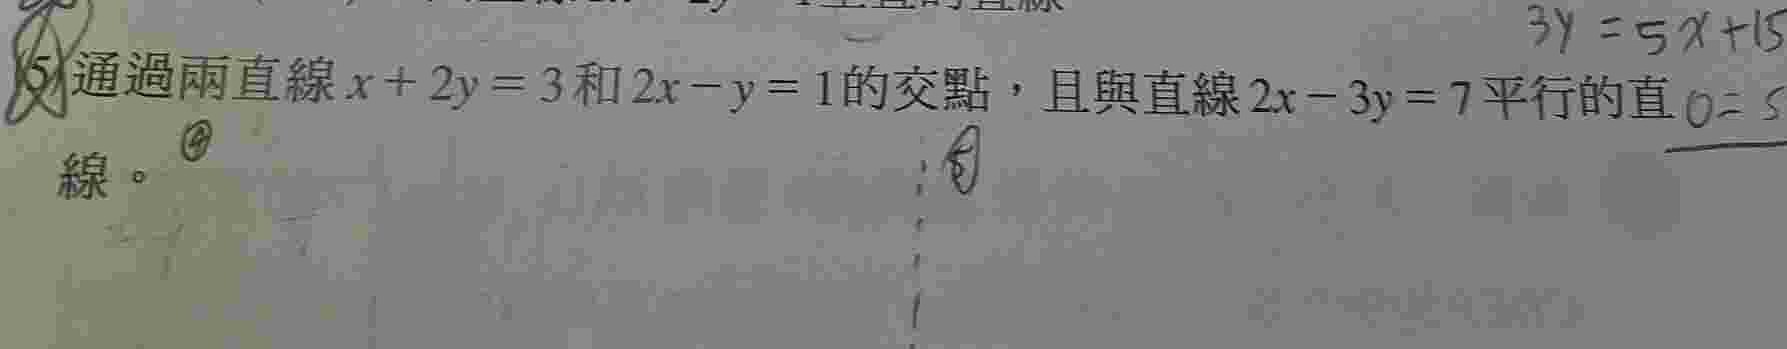 3y = 5x+15
(5)通過兩直線x + 2y = 3和2x − y = 1的交點，且與直線2x − 3y = 7平行的直
0= 5
線。④
⑤